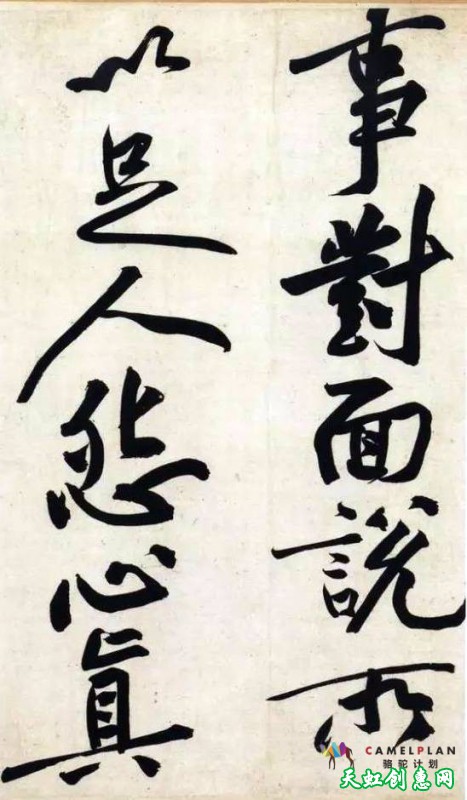 事對面說所
以足人怨心真
CAMELPLAN
骆驼计划
天虹创惠网